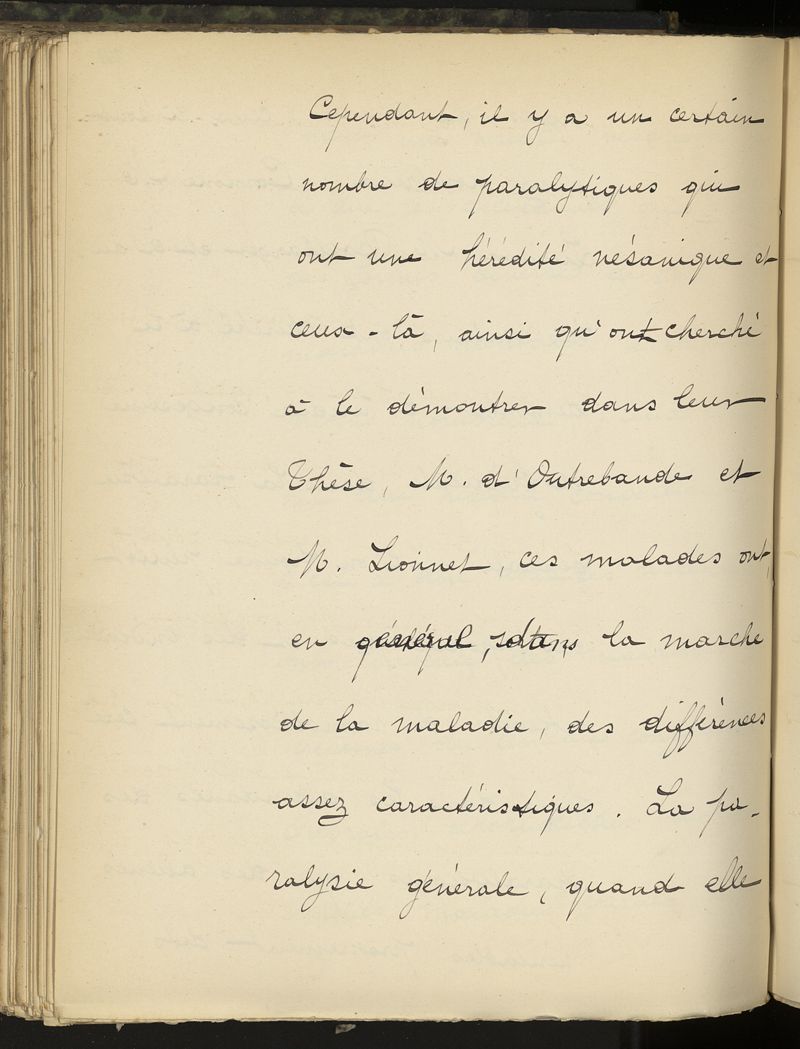 Cependant, il y a un certain
nombre de paralytiques qui
ont une hérédité vésanique et
ceux-là, ainsi qu'ont cherché
à le démontrer dans leur
Thèse, M. d'Outrebande et
M. Lionnet, ces malades ont,
en général, dans la marche
de la maladie, des différences
assez caractéristiques. La pa-
ralysie générale, quand elle